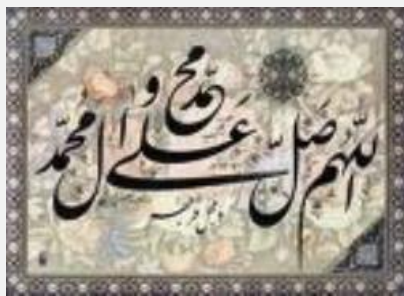 اللّهم صَلّ عَلی محمّد و آل محمّد
و عجل فرجهم